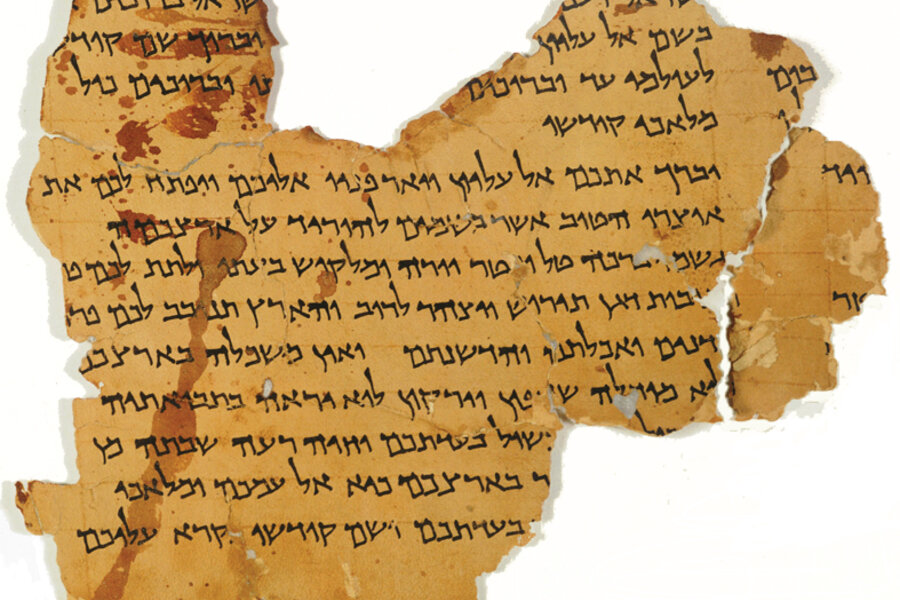 בשם אל עליון וברוך שם קודש
לעולמי עד וברוכים וברוכים כול
מלאכי קודשו
יברך אתכם אל עליון ויאר פניו אליכם ויפתח לכם את
אוצרו הטוב אשר בשמים להוריד על ארצכם
גשמי ברכה טל ומטר יורה ומלקוש בעתו ולתת לכם
דגן תירוש ויצהר לרוב והארץ תנובב לכם פרי
ואכלתם והדשנתם ואין משכלה בארצכם
מוחלה וירקון לוא יראה בתבואתיה
בעדתכם וחיה רעה שבתה מן
בארצכם כיא אל עמכם ומלאכי
בעדתכם ושם קודשו נקרא עליכם